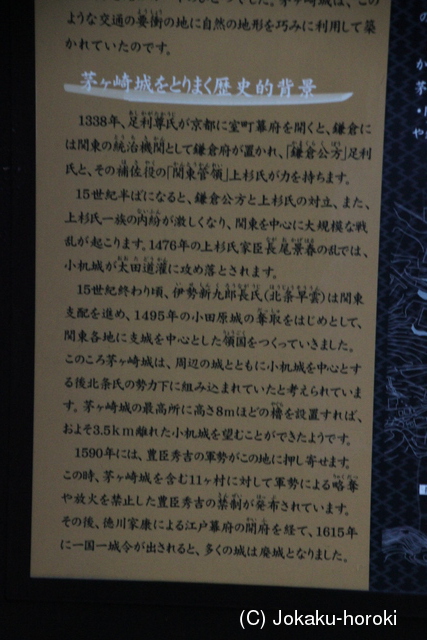 ような交通の要衝の地に自然の地形を巧みに利用して築
かれていたのです。
茅ヶ崎城をとりまく歴史的背景
1338年、足利尊氏が京都に室町幕府を開くと、鎌倉に
は関東の統治機関として鎌倉府が置かれ、「鎌倉公方」足利
氏と、その補佐役の「関東管領」上杉氏が力を持ちます。
15世紀半ばになると、鎌倉公方と上杉氏の対立、また、
上杉氏一族の内紛が激しくなり、関東を中心に大規模な戦
乱が起こります。1476年の上杉氏家臣長尾景春の乱では、
小机城が太田道灌に攻め落とされます。
15世紀終わり頃、伊勢新九郎長氏(北条早雲)は関東
支配を進め、1495年の小田原城の奪取をはじめとして、
関東各地に支城を中心とした領国をつくっていきました。
このころ茅ヶ崎城は、周辺の城とともに小机城を中心とす
る後北条氏の勢力下に組み込まれていたと考えられていま
す。茅ヶ崎城の最高所に高さ8mほどの櫓を設置すれば、
およそ3.5km離れた小机城を望むことができたようです。
1590年には、豊臣秀吉の軍勢がこの地に押し寄せます。
この時、茅ヶ崎城を含む11ヶ村に対して軍勢による略奪
や放火を禁止した豊臣秀吉の禁制が発布されています。
その後、徳川家康による江戸幕府の開府を経て、1615年
に一国一城令が出されると、多くの城は廃城となりました。
(C) Jokaku-horoki